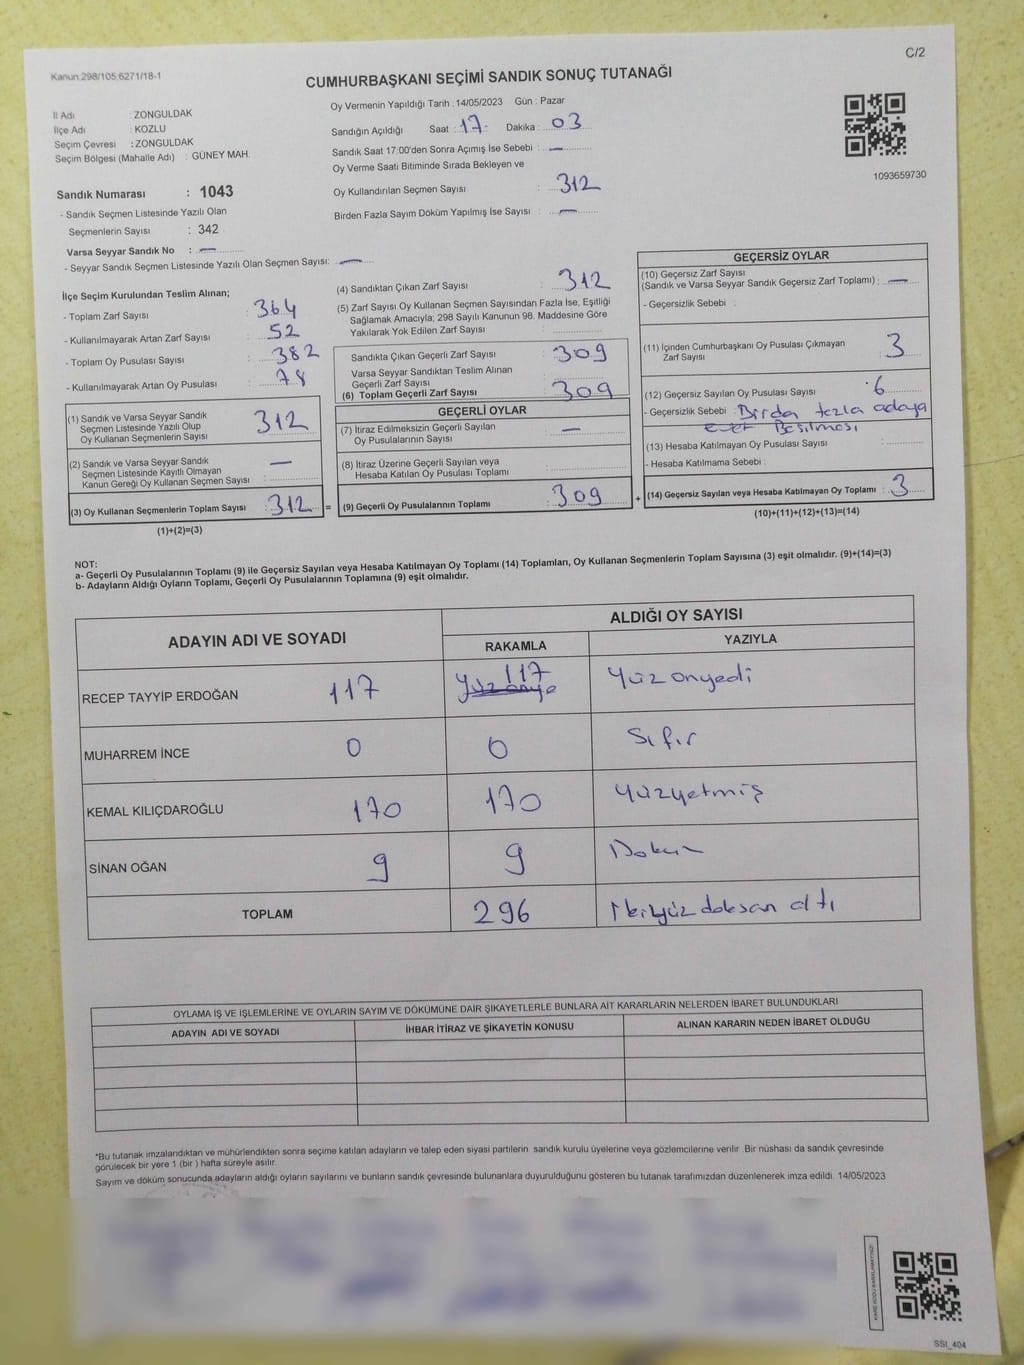 Kanun.298/105,6271/18-1
C/2
CUMHURBAŞKANI SEÇİMİ SANDIK SONUÇ TUTANAĞI
İl Adı : ZONGULDAK
İlçe Adı : KOZLU
Seçim Çevresi : ZONGULDAK
Seçim Bölgesi (Mahalle Adı) : GÜNEY MAH.
Sandık Numarası : 1043
- Sandık Seçmen Listesinde Yazılı Olan
Seçmenlerin Sayısı : 342
Varsa Seyyar Sandık No : —
- Seyyar Sandık Seçmen Listesinde Yazılı Olan Seçmen Sayısı: —
Oy Vermenin Yapıldığı Tarih : 14/05/2023 Gün : Pazar
Sandığın Açıldığı Saat : 17 Dakika : 03
Sandık Saat 17:00'den Sonra Açımış İse Sebebi : —
Oy Verme Saati Bitiminde Sırada Bekleyen ve
Oy Kullandırılan Seçmen Sayısı : 312
Birden Fazla Sayım Döküm Yapılmış İse Sayısı : —
1093659730
İlçe Seçim Kurulundan Teslim Alınan;
- Toplam Zarf Sayısı : 364
- Kullanılmayarak Artan Zarf Sayısı : 52
- Toplam Oy Pusulası Sayısı : 382
- Kullanılmayarak Artan Oy Pusulası : 78
(1) Sandık ve Varsa Seyyar Sandık
Seçmen Listesinde Yazılı Olup
Oy Kullanan Seçmenlerin Sayısı 312
(2) Sandık ve Varsa Seyyar Sandık
Seçmen Listesinde Kayıtlı Olmayan
Kanun Gereği Oy Kullanan Seçmen Sayısı —
(3) Oy Kullanan Seçmenlerin Toplam Sayısı : 312 =
(1)+(2)=(3)
(4) Sandıktan Çıkan Zarf Sayısı : 312
(5) Zarf Sayısı Oy Kullanan Seçmen Sayısından Fazla İse, Eşitliği
Sağlamak Amacıyla; 298 Sayılı Kanunun 98. Maddesine Göre
Yakılarak Yok Edilen Zarf Sayısı :
Sandıkta Çıkan Geçerli Zarf Sayısı : 309
Varsa Seyyar Sandıktan Teslim Alınan
Geçerli Zarf Sayısı
(6) Toplam Geçerli Zarf Sayısı : 309
GEÇERLİ OYLAR
(7) İtiraz Edilmeksizin Geçerli Sayılan
Oy Pusulalarının Sayısı : —
(8) İtiraz Üzerine Geçerli Sayılan veya
Hesaba Katılan Oy Pusulası Toplamı :
(9) Geçerli Oy Pusulalarının Toplamı : 309 +
GEÇERSİZ OYLAR
(10) Geçersiz Zarf Sayısı
(Sandık ve Varsa Seyyar Sandık Geçersiz Zarf Toplamı) : —
- Geçersizlik Sebebi :
(11) İçinden Cumhurbaşkanı Oy Pusulası Çıkmayan
Zarf Sayısı : 3
(12) Geçersiz Sayılan Oy Pusulası Sayısı : 6
- Geçersizlik Sebebi : Birden fazla adaya
evet Basılması
(13) Hesaba Katılmayan Oy Pusulası Sayısı :
- Hesaba Katılmama Sebebi :
(14) Geçersiz Sayılan veya Hesaba Katılmayan Oy Toplamı : 3
(10)+(11)+(12)+(13)=(14)
NOT:
a- Geçerli Oy Pusulalarının Toplamı (9) ile Geçersiz Sayılan veya Hesaba Katılmayan Oy Toplamı (14) Toplamları, Oy Kullanan Seçmenlerin Toplam Sayısına (3) eşit olmalıdır. (9)+(14)=(3)
b- Adayların Aldığı Oyların Toplamı, Geçerli Oy Pusulalarının Toplamına (9) eşit olmalıdır.
ADAYIN ADI VE SOYADI
ALDIĞI OY SAYISI
RAKAMLA YAZIYLA
RECEP TAYYİP ERDOĞAN 117 117 Yüzonyedi
MUHARREM İNCE 0 0 Sıfır
KEMAL KILIÇDAROĞLU 170 170 Yüzyetmiş
SİNAN OĞAN 9 9 Dokuz
TOPLAM 296 İkiyüz doksan altı
OYLAMA İŞ VE İŞLEMLERİNE VE OYLARIN SAYIM VE DÖKÜMÜNE DAİR ŞİKAYETLERLE BUNLARA AİT KARARLARIN NELERDEN İBARET BULUNDUKLARI
ADAYIN ADI VE SOYADI İHBAR İTİRAZ VE ŞİKAYETİN KONUSU ALINAN KARARIN NEDEN İBARET OLDUĞU
*Bu tutanak imzalandıktan ve mühürlendikten sonra seçime katılan adayların ve talep eden siyasi partilerin sandık kurulu üyelerine veya gözlemcilerine verilir. Bir nüshası da sandık çevresinde
görülecek bir yere 1 (bir ) hafta süreyle asılır.
Sayım ve döküm sonucunda adayların aldığı oyların sayılarını ve bunların sandık çevresinde bulunanlara duyurulduğunu gösteren bu tutanak tarafımızdan düzenlenerek imza edildi. 14/05/2023
SSI_404